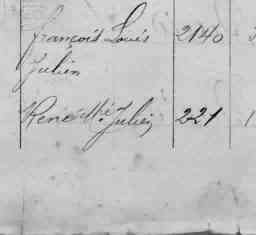 François Louis 2140
Julien
René Mie Julien 221